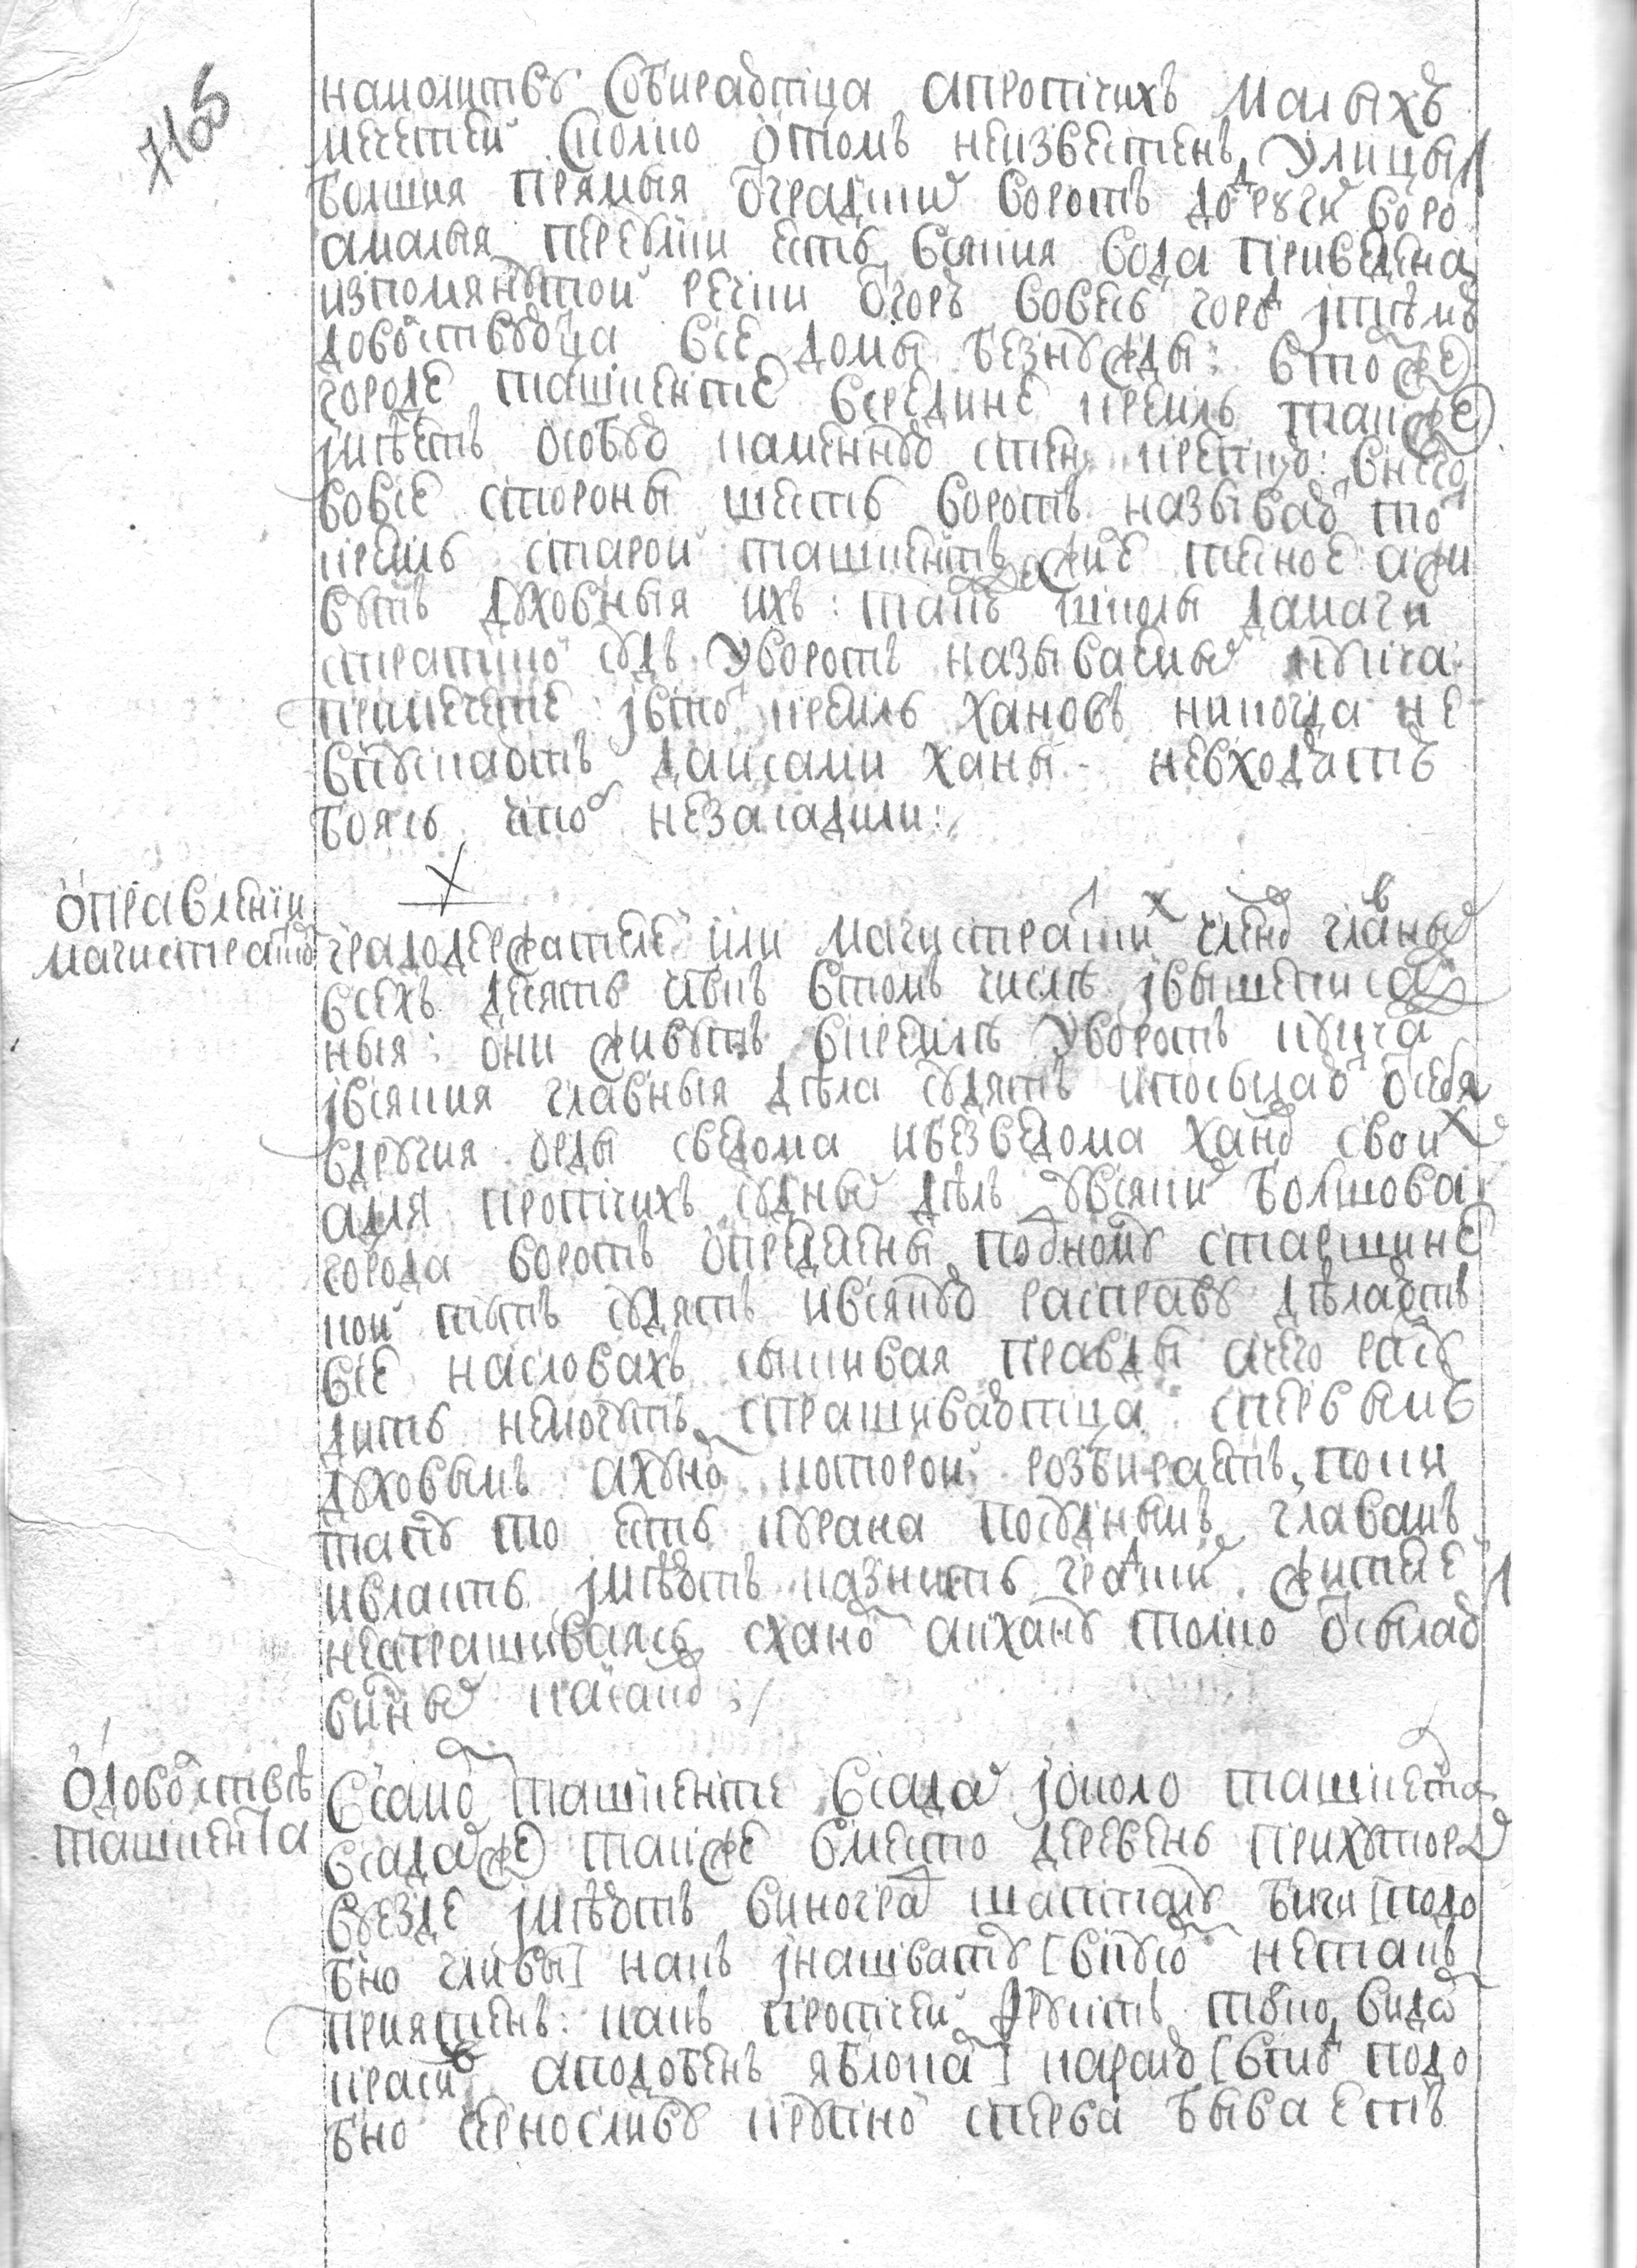 7165
намолитву собираютца апротчихъ малыхъ
мечетей сколко отомъ неизвестенъ, улицы
болшия прямыя ѿградцкихъ воротъ додругихъ воро
амалыя переулки есть, всякия вода приведена
изпомянутой речки ѿгоръ вовесь городъ ітемъ
доволствуюца все домы безнужды: втомже
городе ташкенте всредине кремль также
імѣетъ особую каменную стену крепкую: внего
вовсе стороны шесть воротъ называютъ то
кремль старой ташкентъ, жилье тесное ажи
вутъ духовныя ихъ: тамъ школы даимаги
стратской судъ. Уворотъ называемыхъ кукча
примечение івтотъ кремль хановъ никогда не
впускаютъ даисами ханы - невходятъ
боясь чтоб незасадили:
оправлении
магистрата
градодержателей или магистратскихъ членовъ главныхъ
всехъ десять члвкъ втомъ числѣ івышеписа
ныя: они живутъ вкремлѣ уворотъ кукча
івсякия главныя дѣла судятъ ипосылаютъ ѿсебя
вдругия орды сведома ибезведома ханов своих
адля протчихъ судныхъ дѣлъ увсякихъ болшова
города воротъ определены, поодному старшине
кои тутъ судятъ ивсякую расправу дѣлаютъ
все насловахъ сыскивая правды ачего разсу
дить немогутъ, спрашиваютца спервымъ
духовнымъ ахуномъ которой розбираетъ, покни
таву то есть курана посуднымъ главамъ
ивласть імѣютъ казнить градскихъ жителей
неспрашиваясь сханомъ акхану толко ѿсылаютъ
винныхъ касакъ;
одоволствѣ
ташкента
Всамомъ ташкенте всадахъ іоколо ташкента
всадахже также вместо деревень прихуторах
вуезде імѣютъ виноградъ шапталу биги [подо
бно сливы] какъ інашпату [вкусом нетакъ
приятенъ: какъ протчей фруктъ токмо, видом
красивъ аподобенъ яблокам] караю [видъ подо
бно черносливу крупно сперва бываетъ